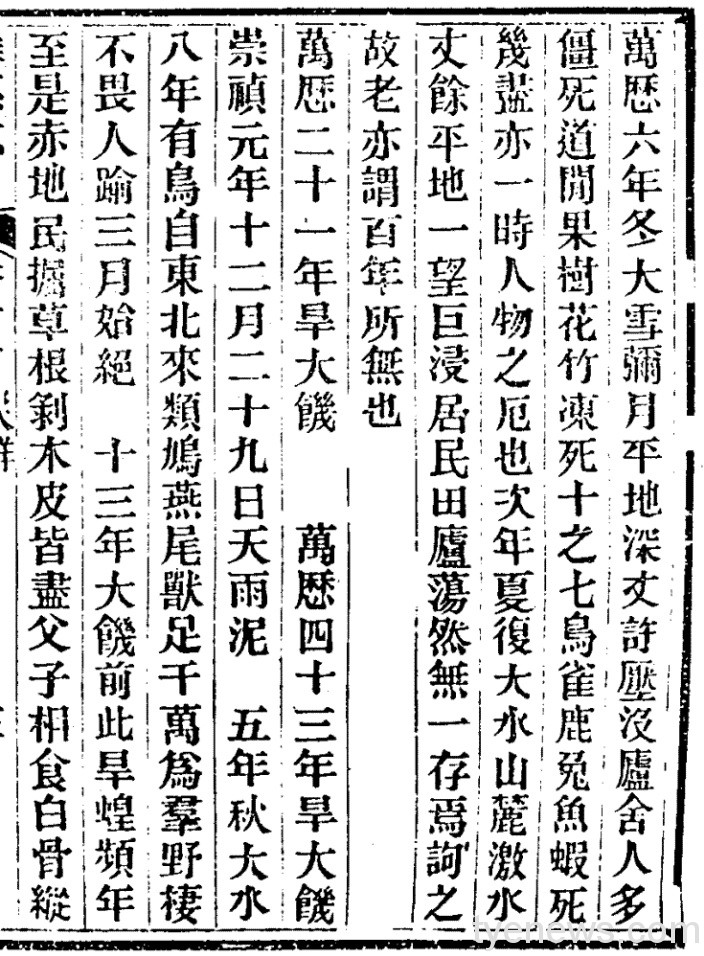 萬歷六年冬大雪彌月平地深丈許壓沒廬舍人多
僵死道閒果樹花竹凍死十之七鳥雀鹿兔魚蝦死
幾盡亦一時人物之厄也次年夏復大水山麓激水
丈餘平地一望巨浸居民田廬蕩然無一存焉詢之
故老亦謂百年所無也
萬歷二十一年旱大饑 萬歷四十三年旱大饑
崇禎元年十二月二十九日天雨泥 五年秋大水
八年有鳥自東北來類鳩燕尾獸足千萬爲羣野棲
不畏人踰三月始絕 十三年大饑前此旱蝗頻年
至是赤地民掘草根剝木皮皆盡父子相食白骨縱
lyenews.com